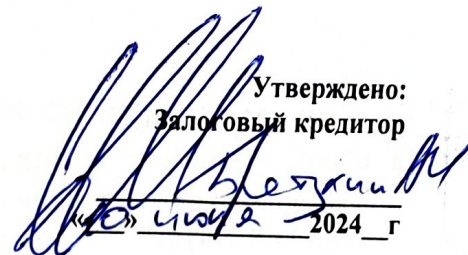 Утверждено:
Залоговый кредитор
«10» июня 2024 г